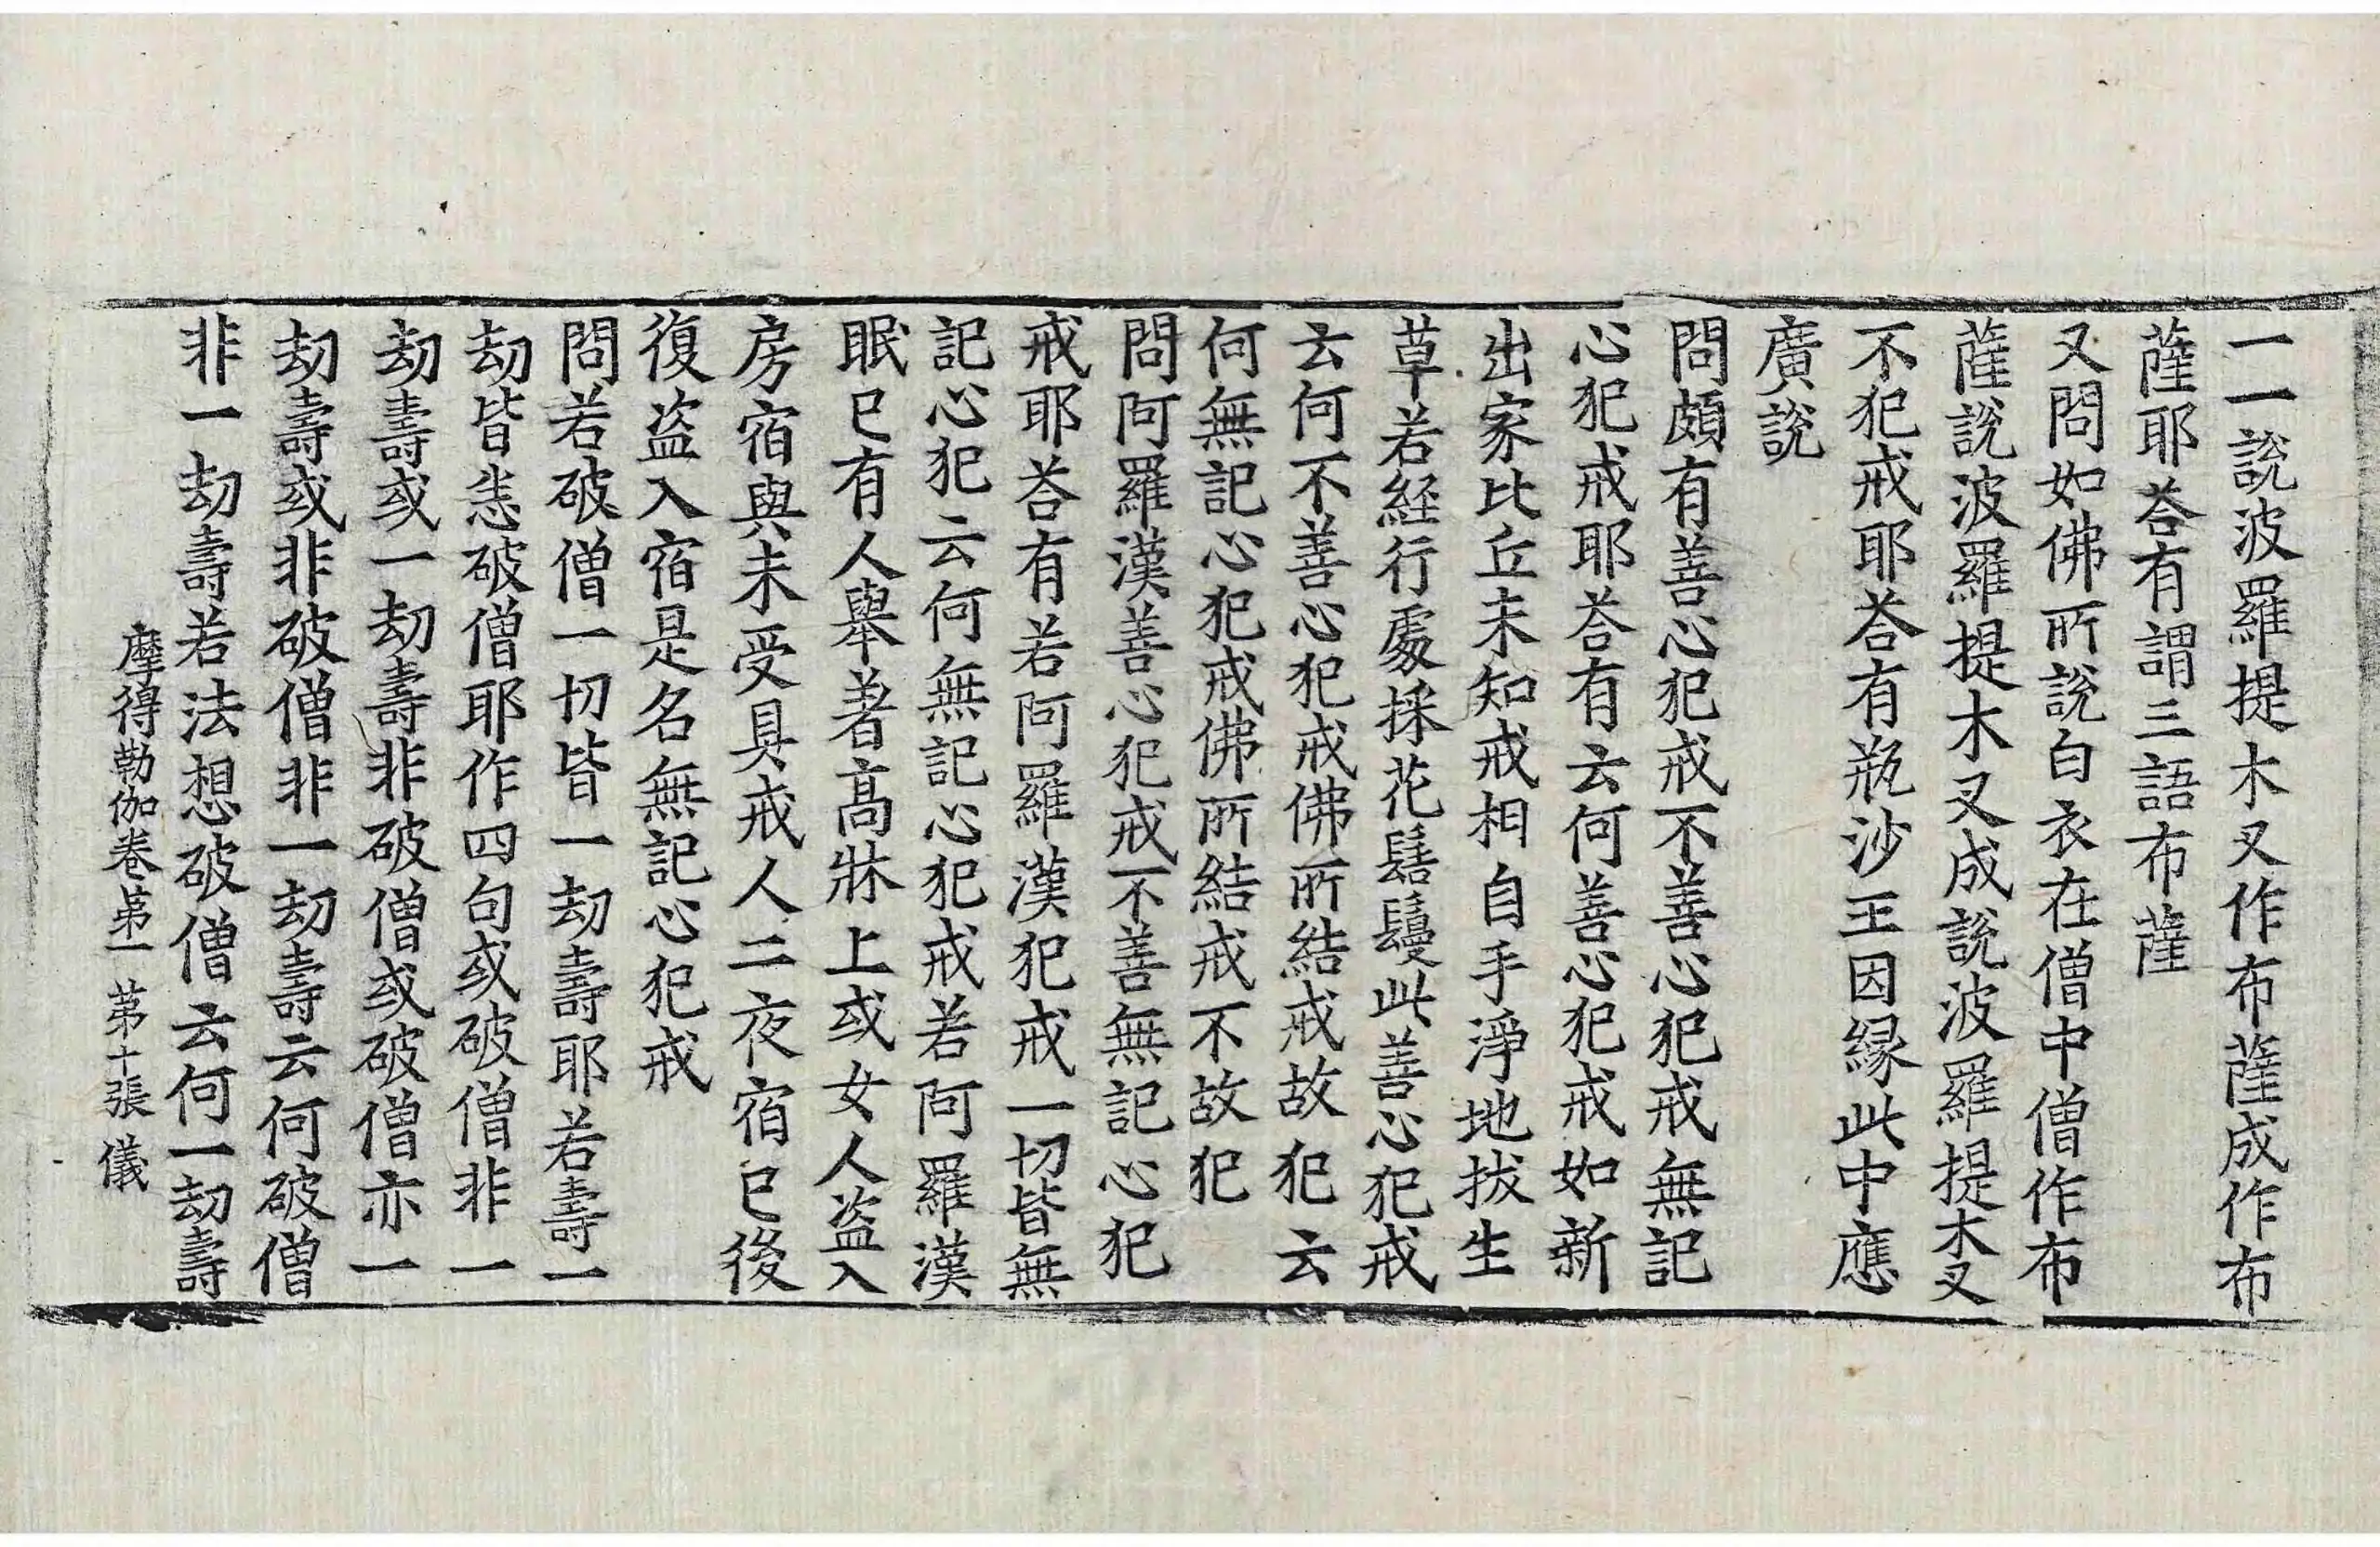 一一說波羅提木叉作布薩成作布
薩耶荅有謂三語布薩
又問如佛所說白衣在僧中僧作布
薩說波羅提木叉成說波羅提木叉
不犯戒耶荅有瓶沙王因緣此中應
廣說
問頗有善心犯戒不善心犯戒無記
心犯戒耶荅有云何善心犯戒如新
出家比丘未知戒相自手淨地拔生
草若經行處採花髻鬘此善心犯戒
云何不善心犯戒佛所結戒故犯云
何無記心犯戒佛所結戒不故犯
問阿羅漢善心犯戒不善無記心犯
戒耶荅有若阿羅漢犯戒一切皆無
記心犯云何無記心犯戒若阿羅漢
眠已有人舉著高牀上或女人盜入
房宿與未受具戒人二夜宿已後
復盜入宿是名無記心犯戒
問若破僧一切皆一劫壽耶若壽一
劫皆悉破僧耶作四句或破僧非一
劫壽或一劫壽非破僧或破僧亦一
劫壽或非破僧非一劫壽云何破僧
非一劫壽若法想破僧云何一劫壽
摩得勒伽卷第一 第十張 儀